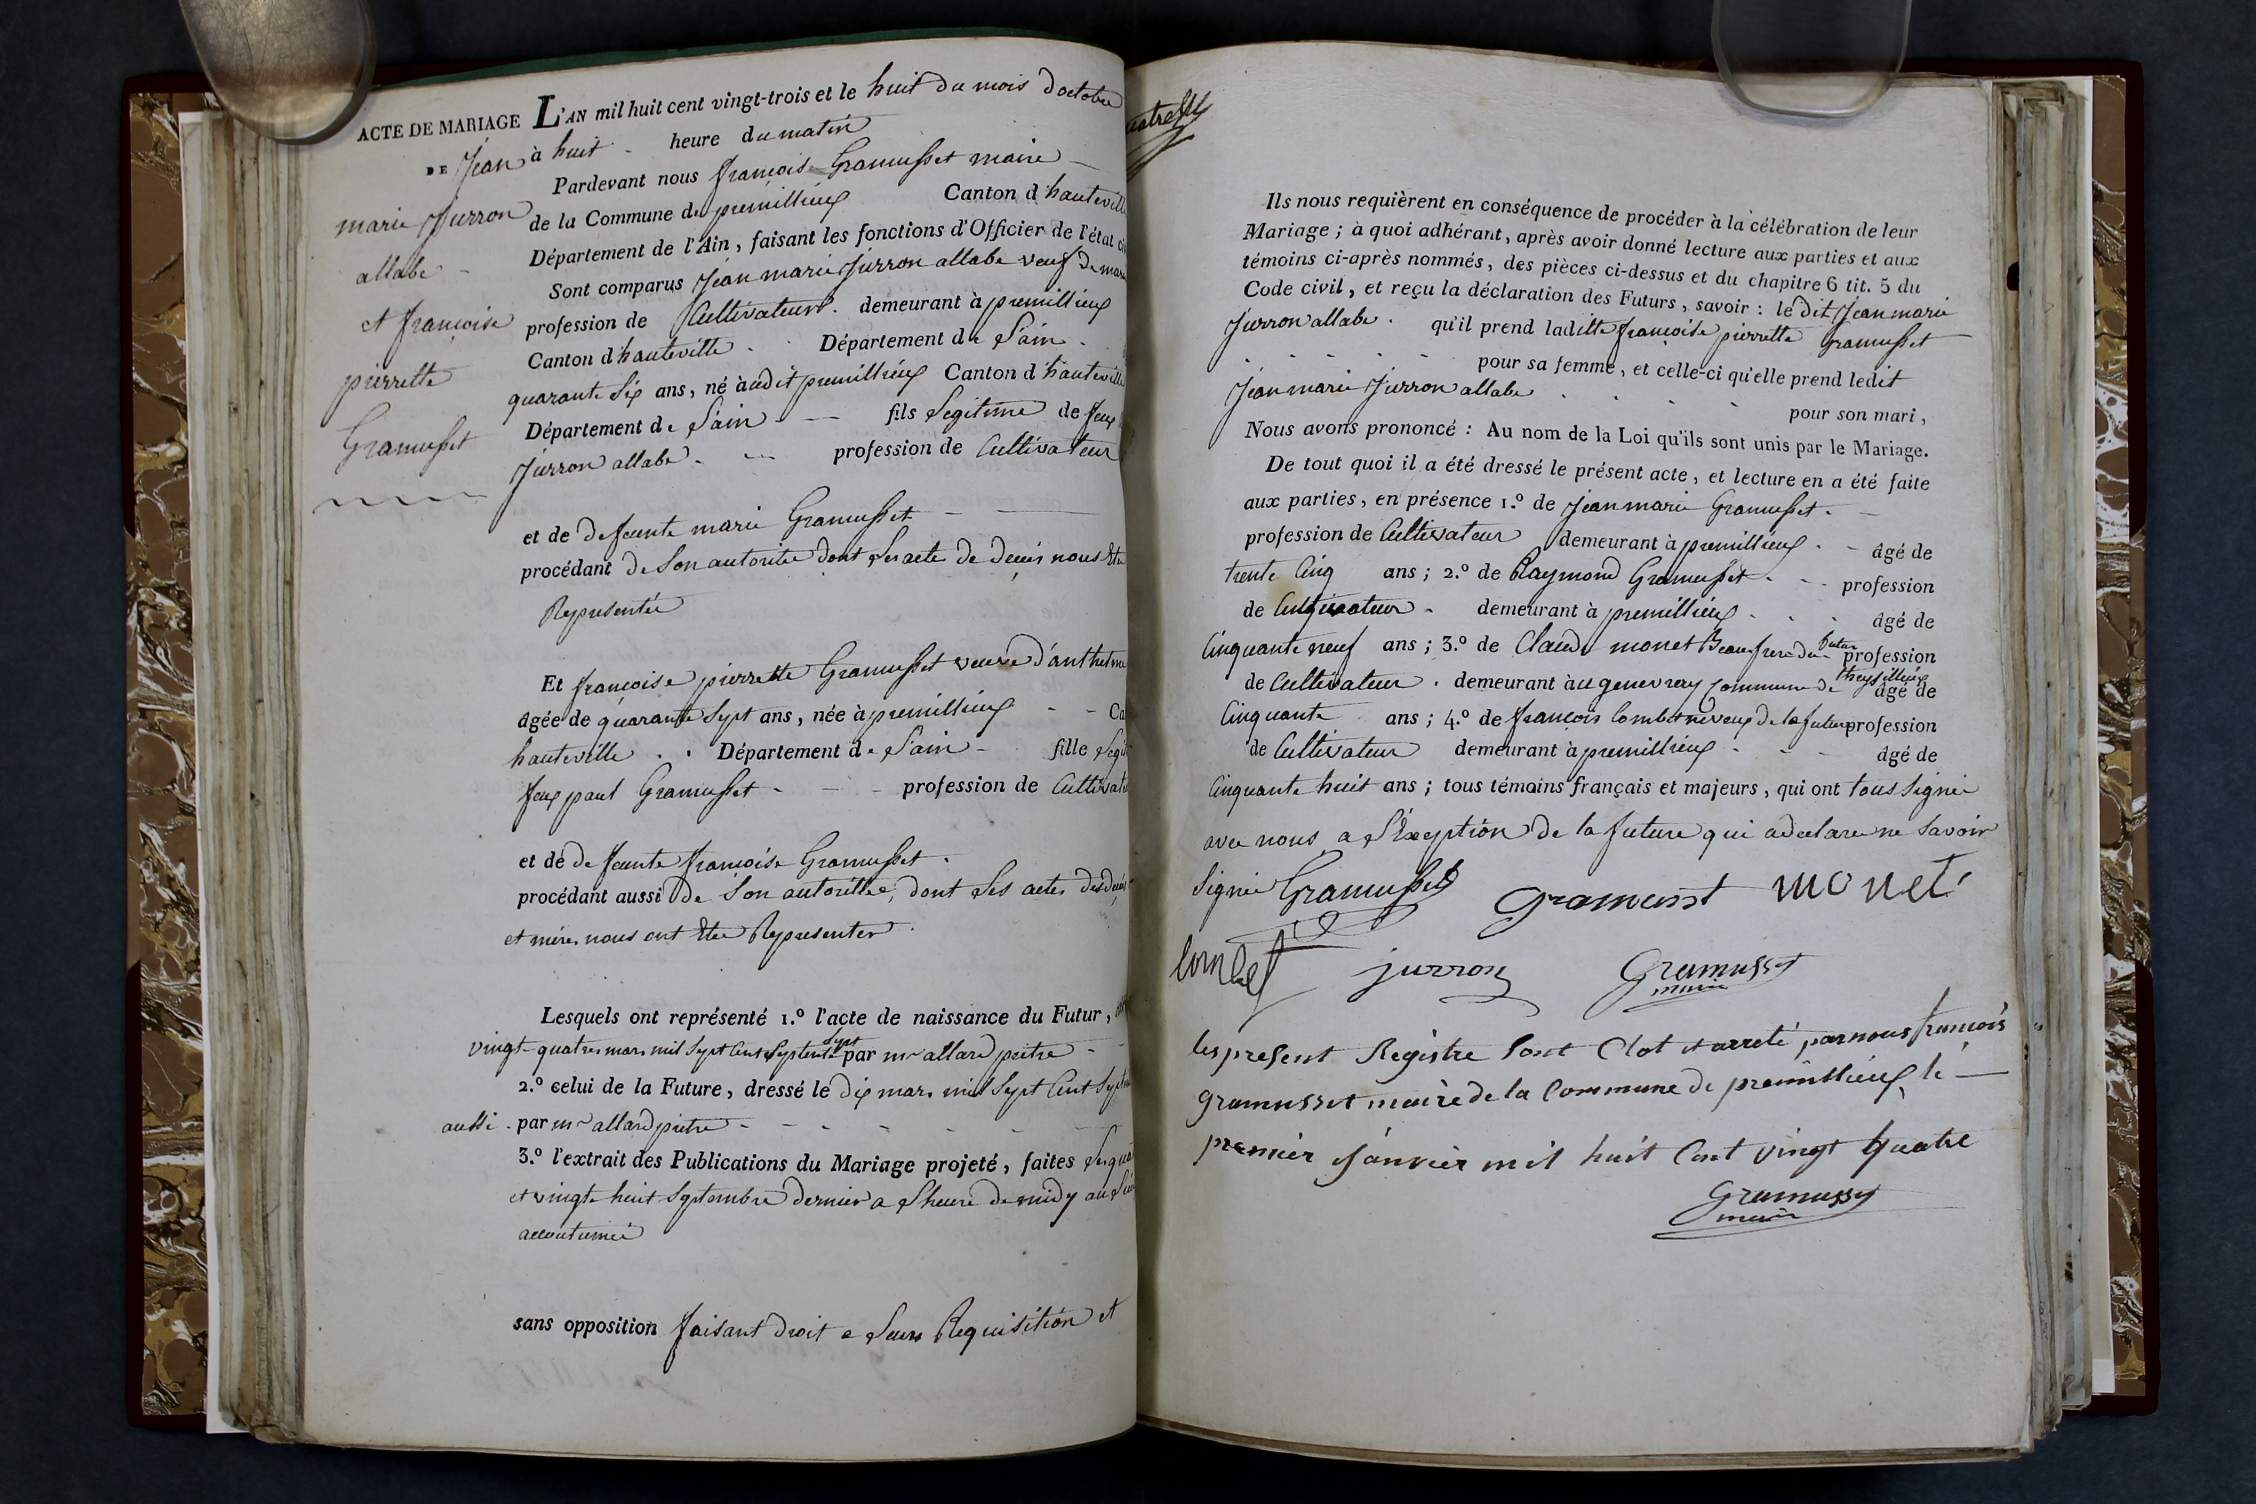 ACTE DE MARIAGE
DE Jean
marie Jurron
allabe
et françoise
pierrette
Gramusset
L'AN mil huit cent vingt-trois et le huit du mois doctobre
à huit heure du matin
Pardevant nous françois Gramusset maire
de la Commune de premillieux Canton d'hauteville
Département de l'Ain, faisant les fonctions d'Officier de l'état
Sont comparus Jean marie Jurron allabe veuf de
profession de Cultivateur demeurant à premillieux
Canton d'hauteville Département de l'ain
quarante six ans, né audit premillieux Canton d'hauteville
Département de l'ain fils legitime de feux
Jurron allabe profession de Cultivateur
et de defeunte marie Gramusset
procédant de son autorite dont les acte de deces nous
Representée
Et françoise pierrette Gramusset veuve d'anthelme
âgée de quarante sept ans, née à premillieux
hauteville Département de l'ain fille
feux paul Gramusset profession de
et de defeunte françoise Gramusset
procédant aussi de son autorittée, dont les actes
et mère nous ont Eté Representer
Lesquels ont représenté 1.º l'acte de naissance du Futur,
vingt quatres mars mil sept Cent septente sept par mr allard pretre
2.º celui de la Future, dressé le dix mars mil sept Cent
aussi par mr allard pretre
3.º l'extrait des Publications du Mariage projeté, faites
et vingt huit septembre dernier a l'heure de midy au
accoutumée
sans opposition faisant droit a leurs Requisition et
Ils nous requièrent en conséquence de procéder à la célébration de leur
Mariage ; à quoi adhérant, après avoir donné lecture aux parties et aux
témoins ci-après nommés, des pièces ci-dessus et du chapitre 6 tit. 5 du
Code civil, et reçu la déclaration des Futurs, savoir : le dit Jean marie
Jurron allabe qu'il prend laditte françoise pierrette Gramusset
pour sa femme, et celle-ci qu'elle prend ledit
Jean marie Jurron allabe pour son mari,
Nous avons prononcé : Au nom de la Loi qu'ils sont unis par le Mariage.
De tout quoi il a été dressé le présent acte, et lecture en a été faite
aux parties, en présence 1.º de Jean marie Gramusset
profession de Cultivateur demeurant à premillieux âgé de
trente Cinq ans ; 2.º de Raymond Gramusset profession
de Cultivateur demeurant à premillieux âgé de
Cinquante neuf ans ; 3.º de Claude monet Beaufrere du futur profession
de Cultivateur demeurant au genevray Commune de theysillieu âgé de
Cinquante ans ; 4.º de françois Combet neveux de la future profession
de Cultivateur demeurant à premillieux âgé de
Cinquante huit ans ; tous témoins français et majeurs, qui ont tous signé
avec nous a l'Exception de la future qui a declaré ne savoir
signé Gramusset gramusst monet
Combet jurron Gramusset
maire
les present Registre sont Clot et arreté par nous françois
gramusset maire de la Commune de premillieux le
premier janvier mil huit Cent vingt quatre
Gramusset
maire